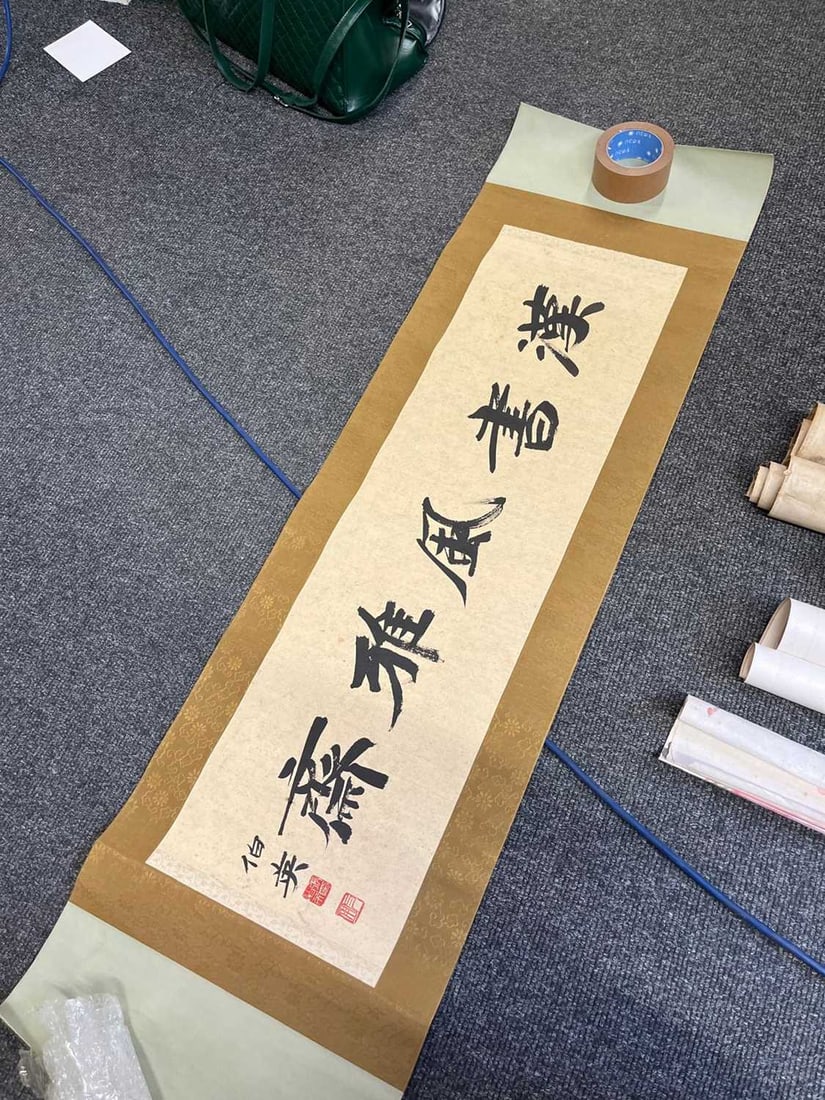 漢書風雅齋
伯英